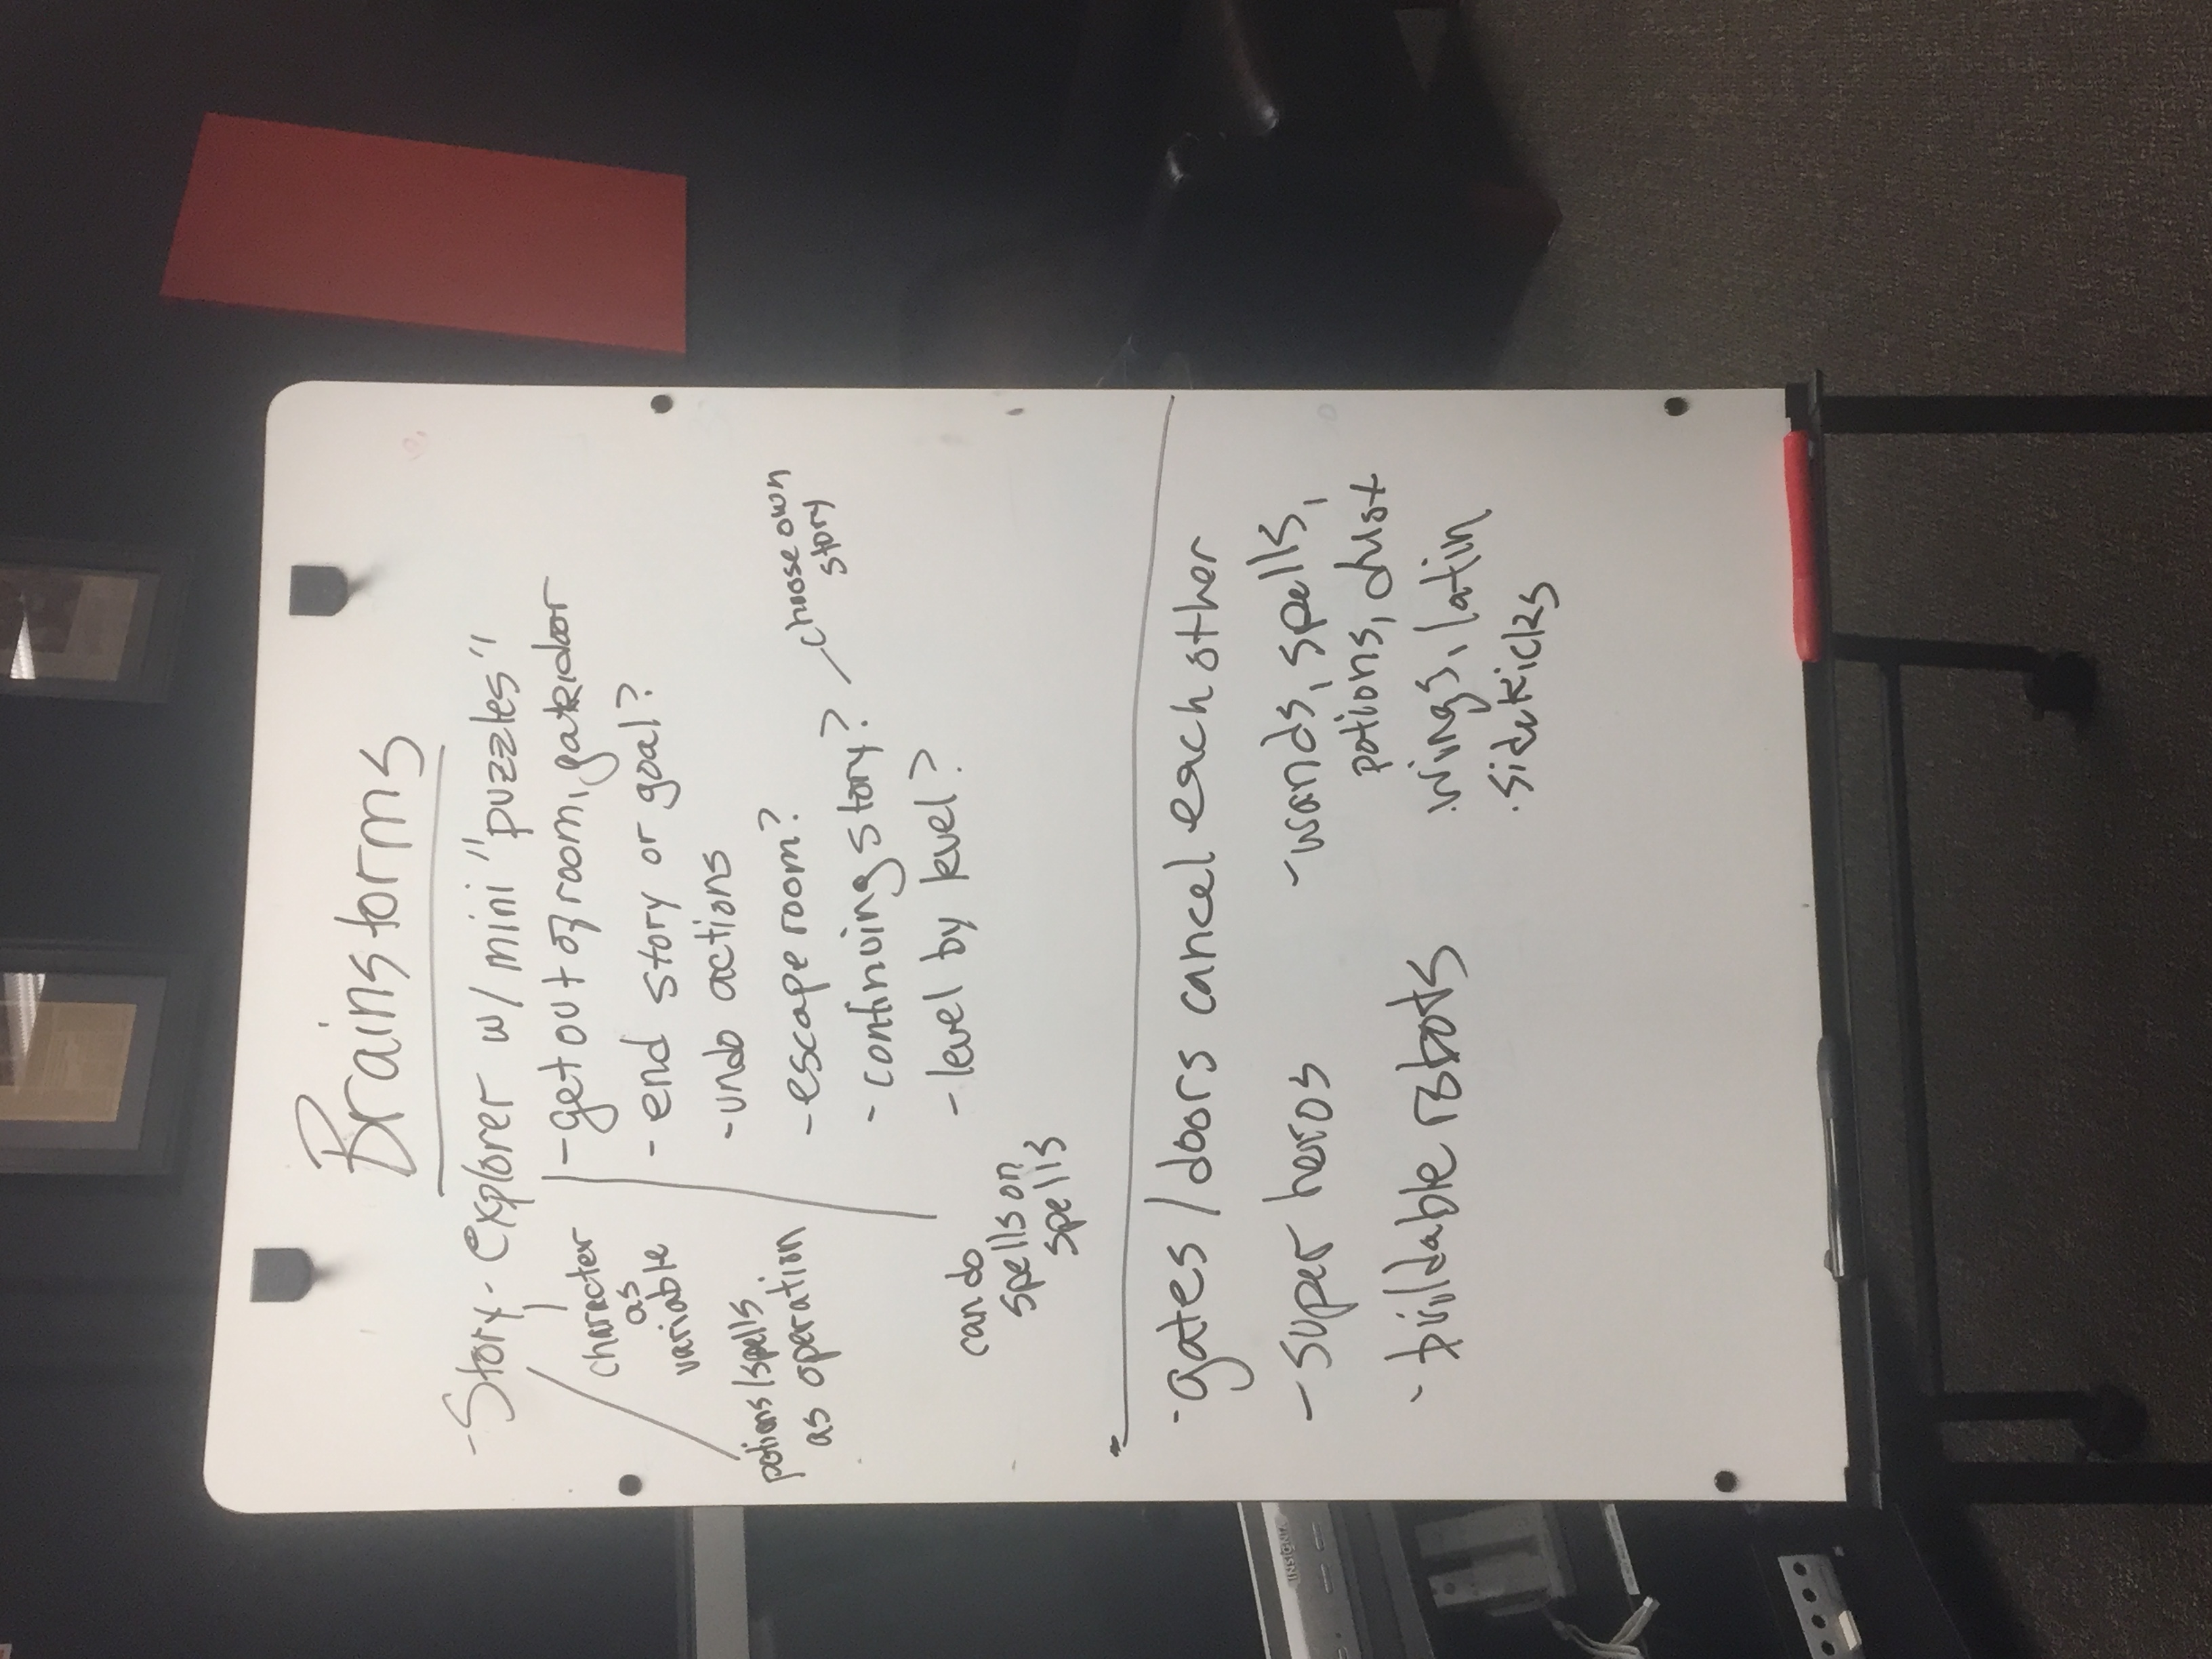 Brainstorms
- Story - explorer w/ mini "puzzles"
character
as
variable
potions/spells
as operation
can do
spells on
spells
- get out of room, gate, door
- end story or goal?
- undo actions
- escape room?
- continuing story? - choose own
story
- level by level?
- gates / doors cancel each other
- super heros
- buildable robots
- wands, spells,
potions, dust
. wings, latin
. sidekicks
INSIGNIA